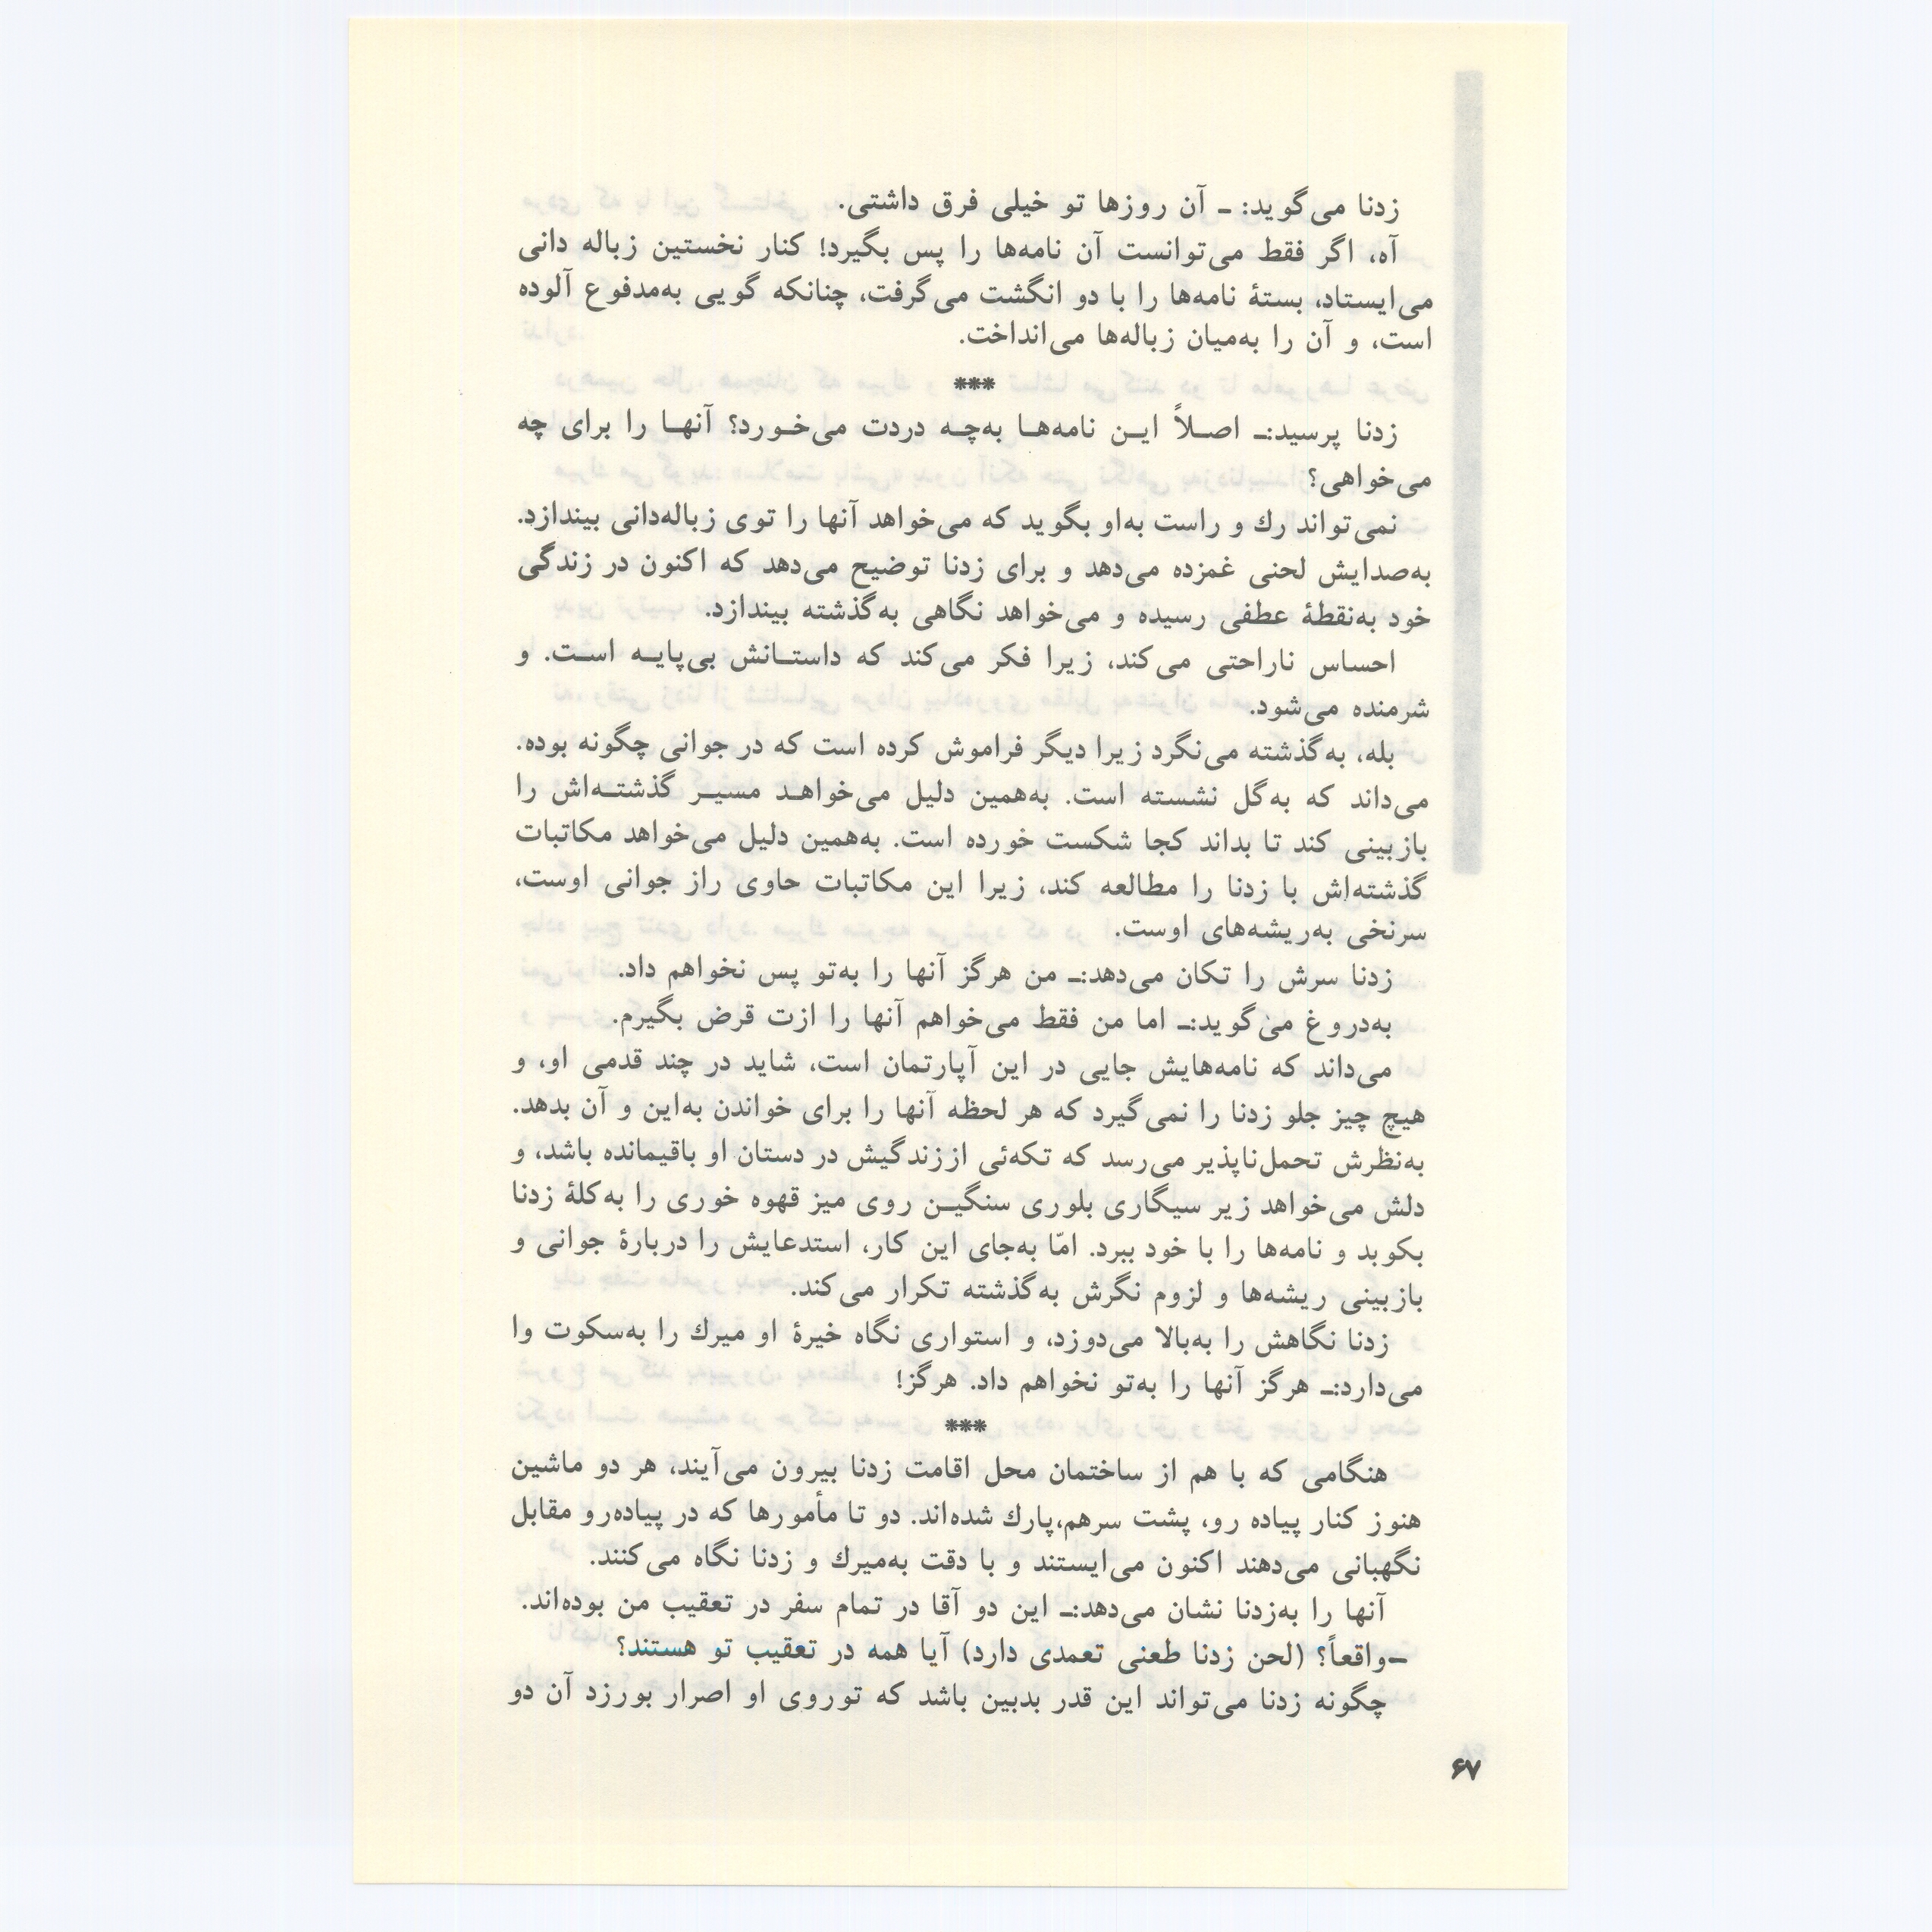 زدنا می‌گوید: ـ آن روزها تو خیلی فرق داشتی.
آه، اگر فقط می‌توانست آن نامه‌ها را پس بگیرد! کنار نخستین زباله دانی
می‌ایستاد، بستهٔ نامه‌ها را با دو انگشت می‌گرفت، چنانکه گویی به‌مدفوع آلوده
است، و آن را به‌میان زباله‌ها می‌انداخت.
***
زدنا پرسید:ـ اصـلاً ایـن نامه‌هـا به‌چـه دردت می‌خـورد؟ آنهـا را برای چه
می‌خواهی؟
نمی‌تواند رك و راست به‌او بگوید که می‌خواهد آنها را توی زباله‌دانی بیندازد.
به‌صدایش لحنی غمزده می‌دهد و برای زدنا توضیح می‌دهد که اکنون در زندگی
خود به‌نقطهٔ عطفی رسیده و می‌خواهد نگاهی به‌گذشته بیندازد.
احساس ناراحتی می‌کند، زیرا فکر می‌کند که داستـانش بی‌پایـه اسـت. و
شرمنده می‌شود.
بله، به‌گذشته می‌نگرد زیرا دیگر فراموش کرده است که در جوانی چگونه بوده.
می‌داند که به‌گل نشسته است. به‌همین دلیل می‌خواهـد مسیـر گذشتـه‌اش را
بازبینی کند تا بداند کجا شکست خورده است. به‌همین دلیل می‌خواهد مکاتبات
گذشته‌اش با زدنا را مطالعه کند، زیرا این مکاتبات حاوی راز جوانی اوست،
سرنخی به‌ریشه‌های اوست.
زدنا سرش را تکان می‌دهد:ـ من هرگز آنها را به‌تو پس نخواهم داد.
به‌دروغ می‌گوید:ـ اما من فقط می‌خواهم آنها را ازت قرض بگیرم.
می‌داند که نامه‌هایش جایی در این آپارتمان است، شاید در چند قدمی او، و
هیچ چیز جلو زدنا را نمی‌گیرد که هر لحظه آنها را برای خواندن به‌این و آن بدهد.
به‌نظرش تحمل‌ناپذیر می‌رسد که تکه‌ئی اززندگیش در دستان او باقیمانده باشد، و
دلش می‌خواهد زیر سیگاری بلوری سنگیـن روی میز قهوه خوری را به‌کلهٔ زدنا
بکوبد و نامه‌ها را با خود ببرد. امّا به‌جای این کار، استدعایش را دربارهٔ جوانی و
بازبینی ریشه‌ها و لزوم نگرش به‌گذشته تکرار می‌کند.
زدنا نگاهش را به‌بالا می‌دوزد، و استواری نگاه خیرهٔ او میرك را به‌سکوت وا
می‌دارد:ـ هرگز آنها را به‌تو نخواهم داد. هرگز!
***
هنگامی که با هم از ساختمان محل اقامت زدنا بیرون می‌آیند، هر دو ماشین
هنوز کنار پیاده رو، پشت سرهم،پارك شده‌اند. دو تا مأمورها که در پیاده‌رو مقابل
نگهبانی می‌دهند اکنون می‌ایستند و با دقت به‌میرك و زدنا نگاه می‌کنند.
آنها را به‌زدنا نشان می‌دهد:ـ این دو آقا در تمام سفر در تعقیب من بوده‌اند.
ـواقعاً؟ (لحن زدنا طعنی تعمدی دارد) آیا همه در تعقیب تو هستند؟
چگونه زدنا می‌تواند این قدر بدبین باشد که توروی او اصرار بورزد آن دو
۶۷